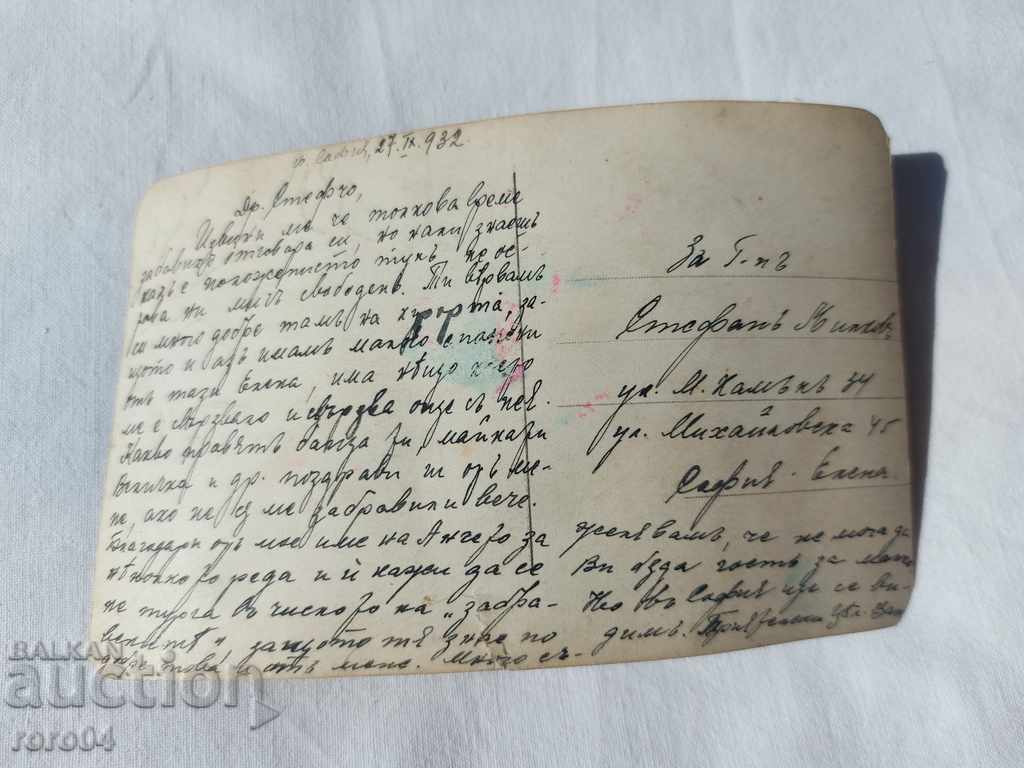 гр. София, 27.IX.932
Др. Стефчо,
Извини ме че толкова време
забавих отговора си, но нали знаешъ
какъ е положението тукъ, не ос-
мигъ свободенъ. Ти вѣрвамъ
си много добре тамъ на хи та, за-
щото и азъ имамъ малко спомени
отъ тази Елена, има нѣщо което
ме е свързвало и свързва още съ нея.
Какво правятъ баща ти, майка ти
и др. поздрави ги отъ ме-
не, ако не са ме забравили вече.
Благодари отъ мое име на Анчето за
нѣколкото реда и й кажи да се
не турга въ числото на „забра-
венитѣ", защото тя знае по
това и отъ мене. Много съ-
жалявамъ, че не мога да
Ви бѫда гость за малко
Но въ София ще се ви-
димъ.
За Г-нъ
Стефанъ
ул. 34
ул. Михайловска 45
София - Елена
ГРГР
BALKAN
auction
roro04